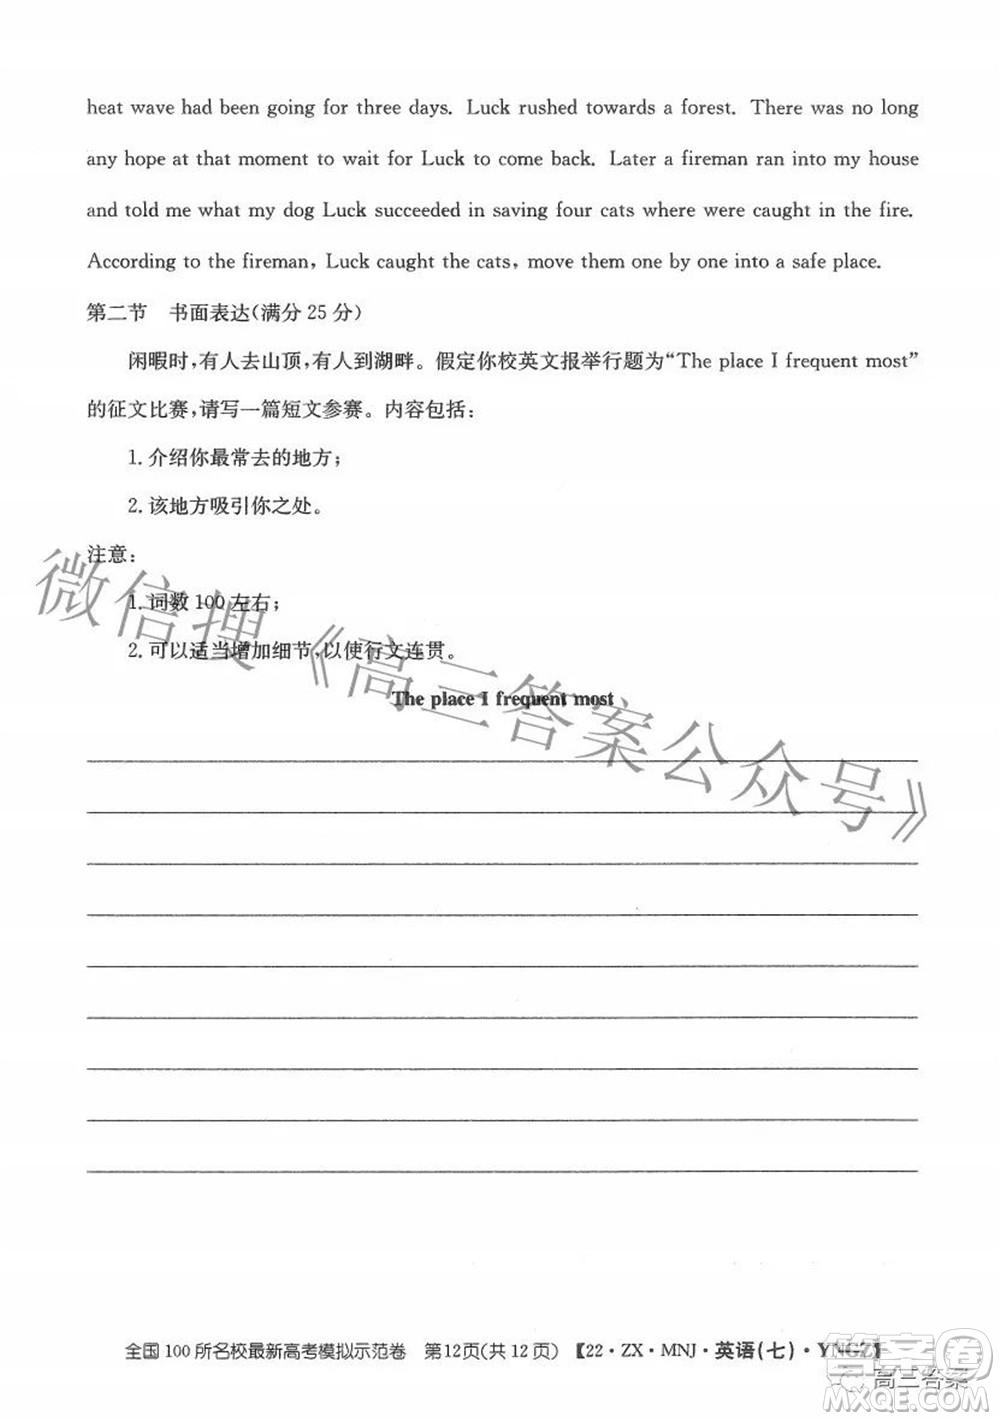 heat wave had been going for three days. Luck rushed towards a forest. There was no long
any hope at that moment to wait for Luck to come back. Later a fireman ran into my house
and told me what my dog Luck succeeded in saving four cats where were caught in the fire.
According to the fireman, Luck caught the cats, move them one by one into a safe place.
第二节 书面表达(满分 25 分)
闲暇时,有人去山顶,有人到湖畔。假定你校英文报举行题为“The place I frequent most”
的征文比赛,请写一篇短文参赛。内容包括:
1. 介绍你最常去的地方;
2. 该地方吸引你之处。
注意:
1. 词数 100 左右;
2. 可以适当增加细节,以使行文连贯。
The place I frequent most
微信搜《高三答案公众号》
全国 100 所名校最新高考模拟示范卷 第12页(共 12 页) 【22·ZX·MNJ·英语(七)·YNGZ】
答案圈
高三答案
MXQE.COM